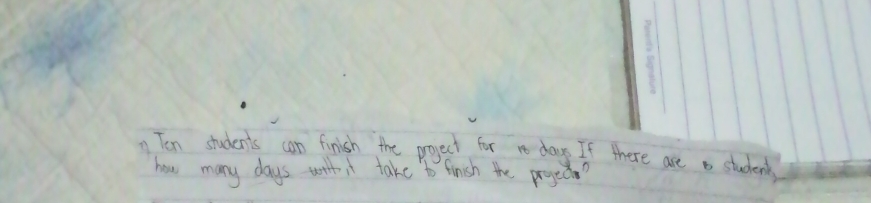 Parent's Signature
Ten students can finish the project for days. If there are students
how many days will it take to finish the project?